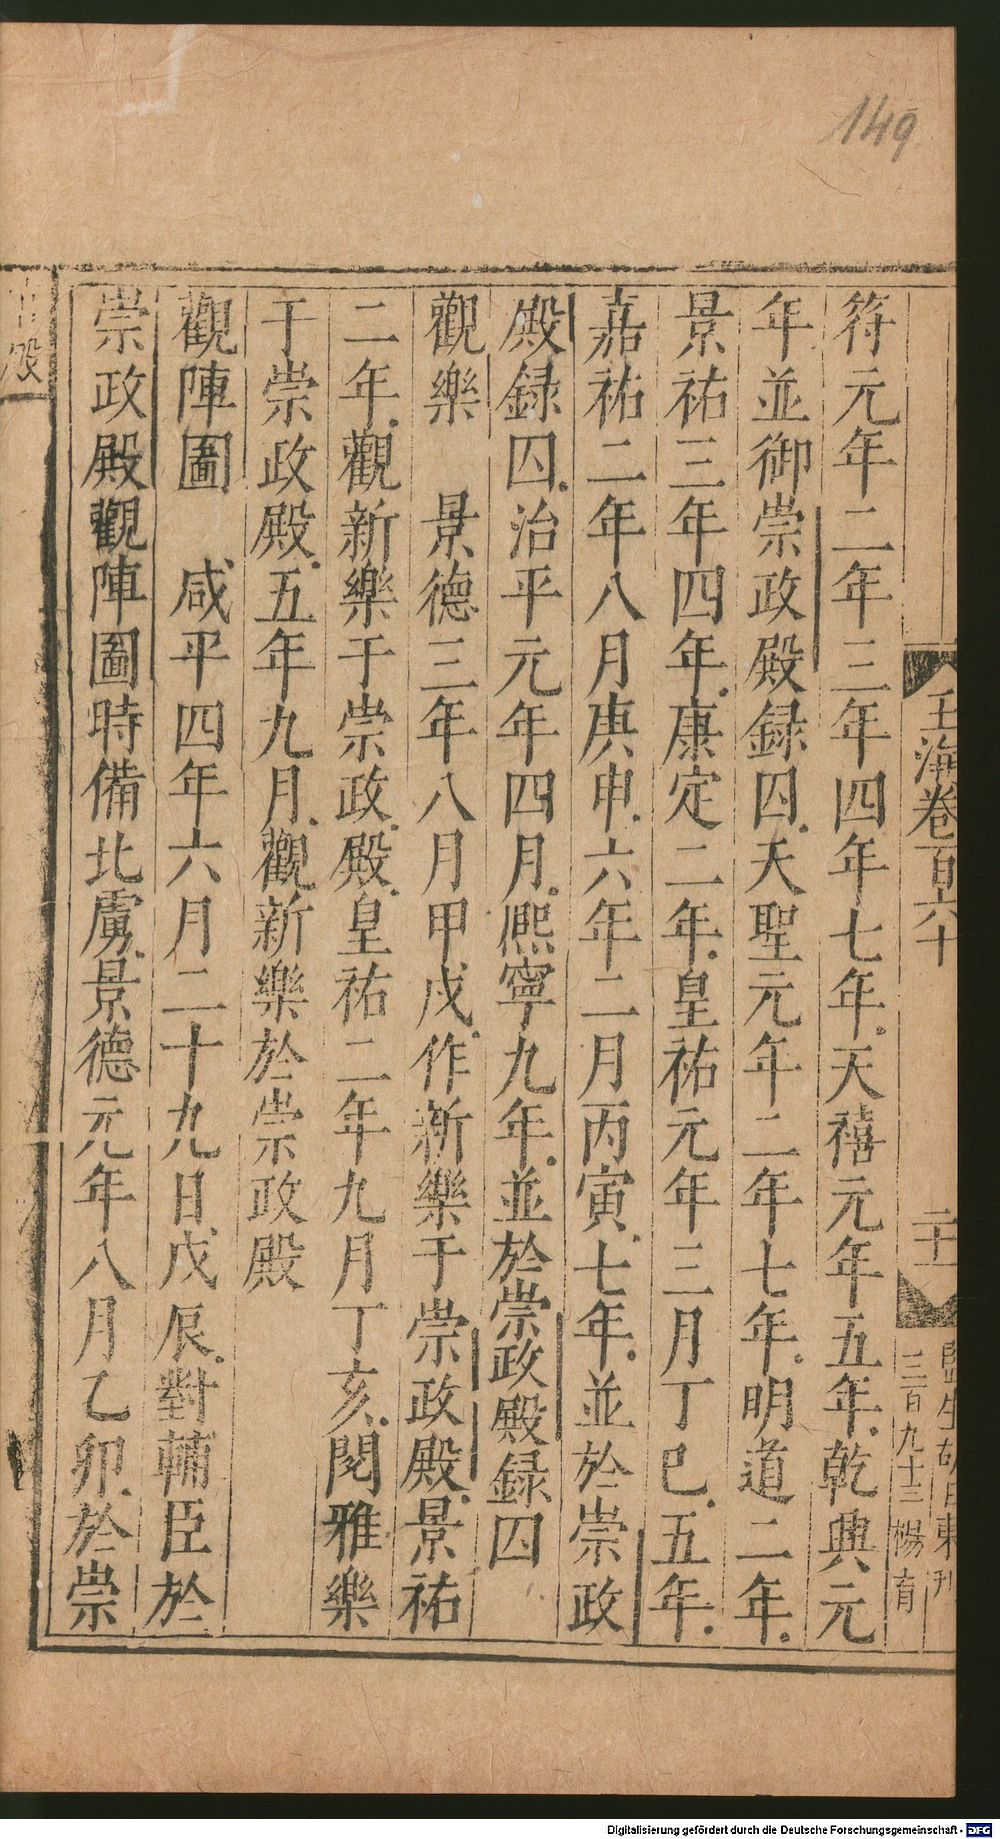 149
玉海卷百六十
二十一
監生胡日東刊
三百九十三 楊育
符元年二年三年四年七年天禧元年五年乾興元
年並御崇政殿録囚天聖元年二年七年明道二年
景祐三年四年康定二年皇祐元年三月丁巳五年
嘉祐二年八月庚申六年二月丙寅七年並於崇政
殿録囚治平元年四月熈寧九年並於崇政殿録囚
觀樂 景德三年八月甲戌作新樂于崇政殿景祐
二年觀新樂于崇政殿皇祐二年九月丁亥閱雅樂
于崇政殿五年九月觀新樂於崇政殿
觀陣圖 咸平四年六月二十九日戊辰對輔臣於
崇政殿觀陣圖時備北虜景德元年八月乙卯於崇
Digitalisierung gefördert durch die Deutsche Forschungsgemeinschaft - DFG